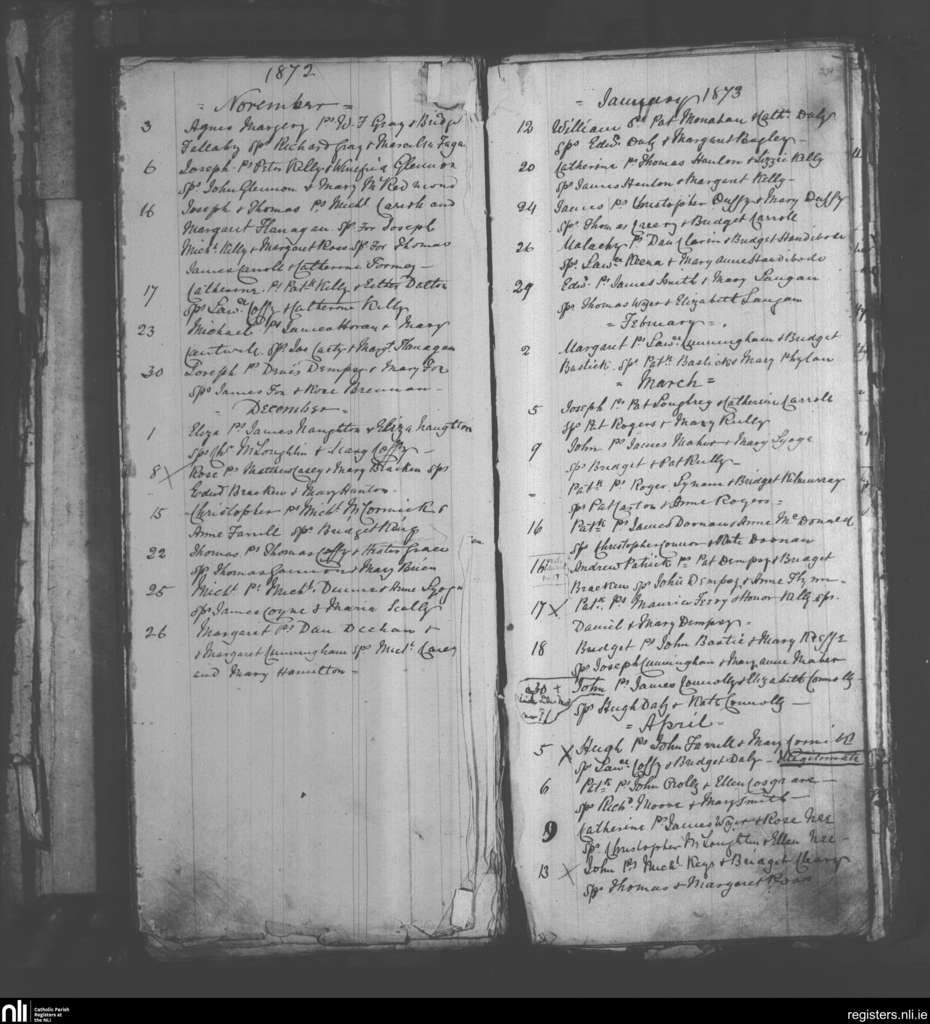 1872
= November =
3 Agnes Margery Ps W. F Gray & Bridge
Sps Richard Gray &
6 Joseph Ps Peter Kelly & Winefrid Glennon
Sps John Glennon & Mary McRedmond
16 Joseph & Thomas Ps Michl Carroll and
Margaret Flanagan. Sps For Joseph
Michl Kelly & Margaret Ross Sps For Thomas
James Carroll & Catherine Formey
17 Catherine Ps Patk Kelly & Esther Dalton
Sps Lawce Coffy & Catherine Kelly
23 Michael Ps James Horan & Mary
Cantwell. Sps Jas Carty & Margt Flanagan
30 Joseph Ps Denis Dempsey & Mary Fox
Sps James Fox & Rose Brennan
= December =
1 Eliza Ps James Naughton & Eliza Naughton
Sps McLoughlin & Coffy
8 X Rose Ps Matthew Casey & Mary Bracken Sps
Edwd Bracken & Mary Hanlon
15 Christopher Ps Michl McCormick &
Anne Farrell Sps Bridget King
22 Thomas Ps Thomas Coffy & Hester Grace
Sps Thomas & Mary Brien
25 Michl Ps Michl Dennis & Anne Lyons
Sps James Coyne & Maria Scally
26 Margaret Ps Dan Deehan &
& Margaret Cunningham Sps Michl Carey
and Mary Hamilton
= January 1873
12 William Ps Pat Monahan & Cathe Daly
Sps Edwd Daly & Margaret Bagley
20 Catherine Ps Thomas Hanlon & Lizzie Kelly
Sps James Hanlon & Margaret Kelly
24 James Ps Christopher Duffy & Mary Duffy
Sps Thomas & Budget Carroll
26 Malachy Ps Dan & Budget Handibode
Sps Lawce & Mary Anne Handibode
29 Edwd Ps James Smith & Mary Langan
Sps Thomas Wyer & Elizabeth Langan
= February =
2 Margaret Ps Lawce Cunningham & Budget
Bastick. Sps Patk Bastick & Mary Phylan
= March =
5 Joseph Ps Pat Loughrey & Catherine Carroll
Sps Pat Rogers & Mary Kelly
9 John Ps James Maher & Mary Lyons
Sps Bridget & Pat Kelly
- Patk Ps Roger Lynam & Bridget Kilmurray
Sps Pat & Anne Rogers
16 Patk Ps James Dornan & Anne McDonald
Sps Christopher Connor & Kate Doonan
16 Andrew Patrick Ps Pat Dempsy & Bridget
Bracken Sps John Dempsy & Anne Flynn
17 X Patk Ps Maurice Terry & Honor Kelly Sps
Daniel & Mary Dempsey
18 Bridget Ps John Bastic & Mary Keffe
Sps Joseph Cunningham & Mary anne Maher
a 30 + John Ps James Connolly & Elizabeth Connolly
Sps Hugh Daly & Kate Connolly
= April -
5 X Hugh Ps John Farrell & Mary
Sps Lawce Coffy & Bridget Daly - Illegitimate
6 Patk Ps John Crolly & Ellen Cosgrave
Sps Richd Moore & Mary Smith
9 Catherine Ps James Wyer & Rose Nee
Sps Christopher McLoughlin & Ellen Nee
13 X John Ps Michl Keys & Bridget Cleary
Sps Thomas & Margaret
nli
Catholic Parish
Registers at
the NLI
registers.nli.ie